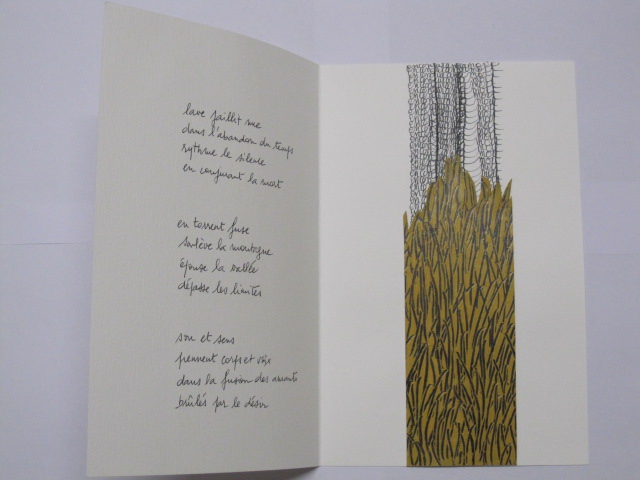 lave jaillit nue
dans l'abandon du temps
rythme le silence
en conjurant la mort
en torrent fuse
soulève la montagne
épouse la vallée
dépasse les limites
son et sens
prennent corps et voix
dans la fusion des amants
brûlés par le désir